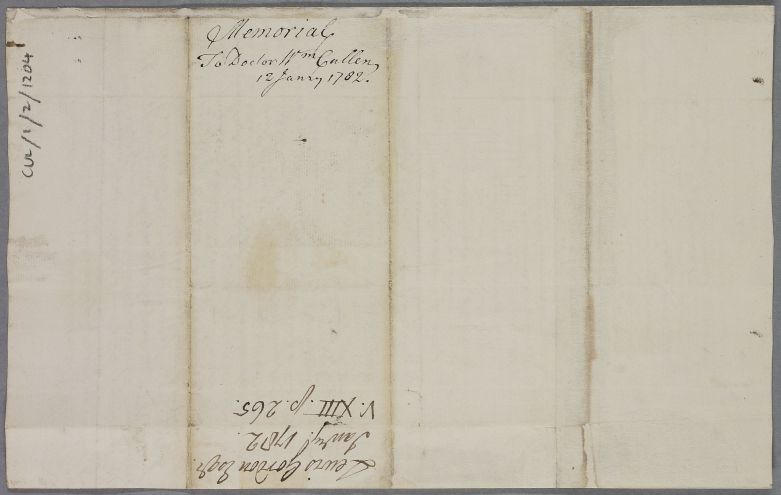 Memorial
To Doctor Wm Cullen,
12 Janry 1782.
CUL/1/2/1204
Lewis Gordon Esqr.
Janry. 1782.
V. XIII p. 265.